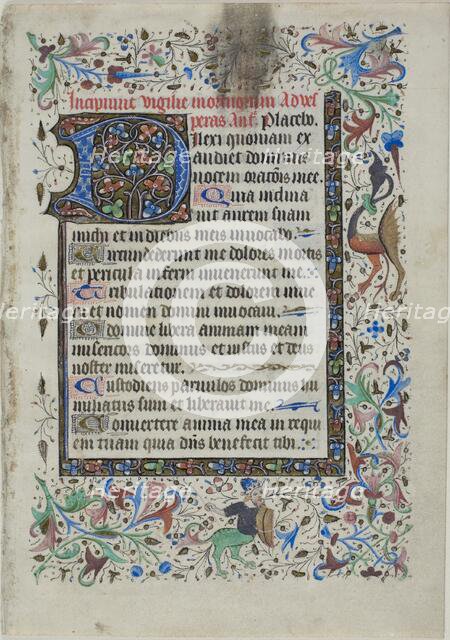 Incipiunt vigilie mortuorum Ad ves
peras Ant. Placebo.
Dilexi quoniam ex
audiet dominus
vocem orationis mee.
Quia inclina
vit aurem suam
michi et in diebus meis invocabo.
Circundederunt me dolores mortis
et pericula inferni invenerunt me.
Tribulationem et dolorem inve
ni et nomen domini invocavi.
O domine libera animam meam
misericors dominus et iustus et deus
noster miseretur.
Custodiens parvulos dominus hu
miliatus sum et liberavit me.
Convertere anima mea in requi
em tuam quia dns benefecit tibi.
Heritage